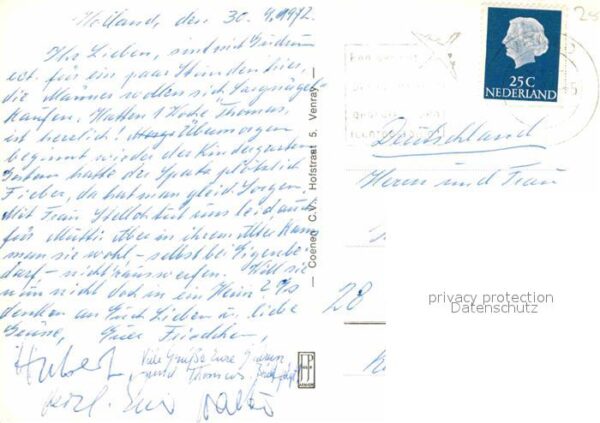 Holland, den 30.4.1972.
Ihr Lieben, sind mit Gudrun
erst für ein paar Stunden hier,
die Männer wollen sich Sargnägel
kaufen. Hatten 1 Woche Thomas,
ist herrlich! Übermorgen
beginnt wieder der Kindergarten
Gestern hatte der Spatz plötzlich
Fieber, da hat man gleich Sorgen.
Mit Frau tut uns leid auch
für Mutti. Aber in ihrem Alter kann
man sie wohl - selbst bei Eigenbe-
darf - nicht rauswerfen. Will sie
nun nicht doch in ein Heim?
denken an Euch Lieben u. liebe
Grüsse, Euer Friedchen,
Hubert
Viele Grüße Eure Gudrun
und Thomas
— Coenen C.V. Hofstraat 5, Venray —
25 C
NEDERLAND
Deutschland
Herrn und Frau
28
privacy protection
Datenschutz